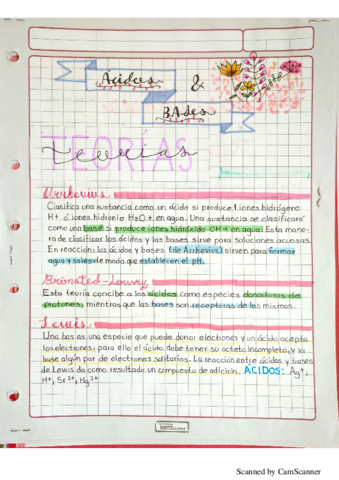 Ácidos
&
BAses
TEORÍAS
Teorías
Arrhenius
Clasifica una sustancia como un ácido si produce iones hidrógeno
H+ ó iones hidronio H3O+ en agua. Una sustancia se clasificará
como una base si produce iones hidróxido OH- en agua. Esta mane-
ra de clasificar los ácidos y las bases sirve para soluciones acuosas.
En reacción los ácidos y bases (de Arrhenius) sirven para formar
agua y sales de modo que establecen el pH.
Brönsted-Lowry
Esta teoría concibe a los ácidos como especies donadoras de
protones, mientras que las bases son receptoras de los mismos.
Lewis
Una base es una especie que puede donar electrones y un ácido acepta
los electrones; para ello el ácido debe tener su octeto incompleto, y la
base algún par de electrones solitarios. La reacción entre ácidos y bases
de Lewis da como resultado un compuesto de adición. ÁCIDOS: Ag+,
H+, Sr2+, Hg2+
Scanned by CamScanner